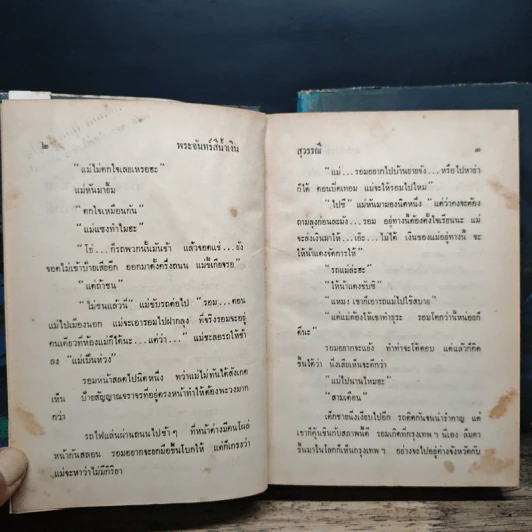 ๒ พระจันทร์สีน้ำเงิน
"แม่ไม่ตกใจเลยเหรอฮะ"
แม่หันมายิ้ม
"ตกใจเหมือนกัน"
"แม่แซงทำไมฮะ"
"โธ่...ก็รถพวกนั้นมันช้า แล้วจอดแช่...ยัง
จอดไม่เข้าป้ายเสียอีก ออกมาตั้งครึ่งถนน แม่ขี้เกียจรอ"
"แต่ถ้าชน"
"ไม่ชนแล้วนี่" แม่ขับรถต่อไป "รอม...ตอน
แม่ไปเมืองนอก แม่จะเอารอมไปฝากลุง ที่จริงรอมจะอยู่
คนเดียวที่ห้องแม่ก็ได้นะ...แต่ว่า..." แม่ชะลอรถให้ช้า
ลง "แม่เป็นห่วง"
รอมหน้าสลดไปนิดหนึ่ง ทว่าแม่ไม่ทันได้สังเกต
เห็น ป้ายสัญญาณจราจรที่อยู่ตรงหน้าทำให้ต้องพะวงมาก
กว่า
รถไฟแล่นผ่านถนนไปช้า ๆ ที่หน้าต่างมีคนโผล่
หน้ากันสลอน รอมอยากจะยกมือขึ้นโบกให้ แต่ก็เกรงว่า
แม่จะหาว่าไม่มีกิริยา
สุวรรณี ๓
"แม่...รอมอยากไปบ้านยายจัง...หรือไปหาย่า
ก็ได้ ตอนปิดเทอม แม่จะให้รอมไปไหม"
"ไปซี" แม่หันมามองนิดหนึ่ง "แต่ว่าคงจะต้อง
ถามลุงก่อนละมัง...รอม อยู่ทางนี้ต้องตั้งใจเรียนนะ แม่
จะส่งเงินมาให้...เอ๊ะ...ไม่ได้ เงินของแม่อยู่ทางนี้ จะ
ให้น้าแดงจัดการให้"
"รถแม่ล่ะฮะ"
"ให้น้าแดงขับซี"
"แหม! เขาก็เอารถแม่ไปโก้สบาย"
"แต่แม่ต้องให้เขาทำธุระ รอมโตกว่านี้หน่อยก็
ดีนะ"
รอมอยากจะแย้ง ทำท่าจะโต้ตอบ แต่แล้วก็คิด
ขึ้นได้ว่า นิ่งเสียเห็นจะดีกว่า
"แม่ไปนานไหมฮะ"
"สามเดือน"
เด็กชายนั่งเงียบไปอีก รถติดกันจนน่ารำคาญ แต่
เขาก็คุ้นชินกับสภาพนี้ดี รอมเกิดที่กรุงเทพ ฯ นี่เอง ลืมตา
ขึ้นมาในโลกก็เห็นกรุงเทพ ฯ อย่างจะไปอยู่ต่างจังหวัดกับ